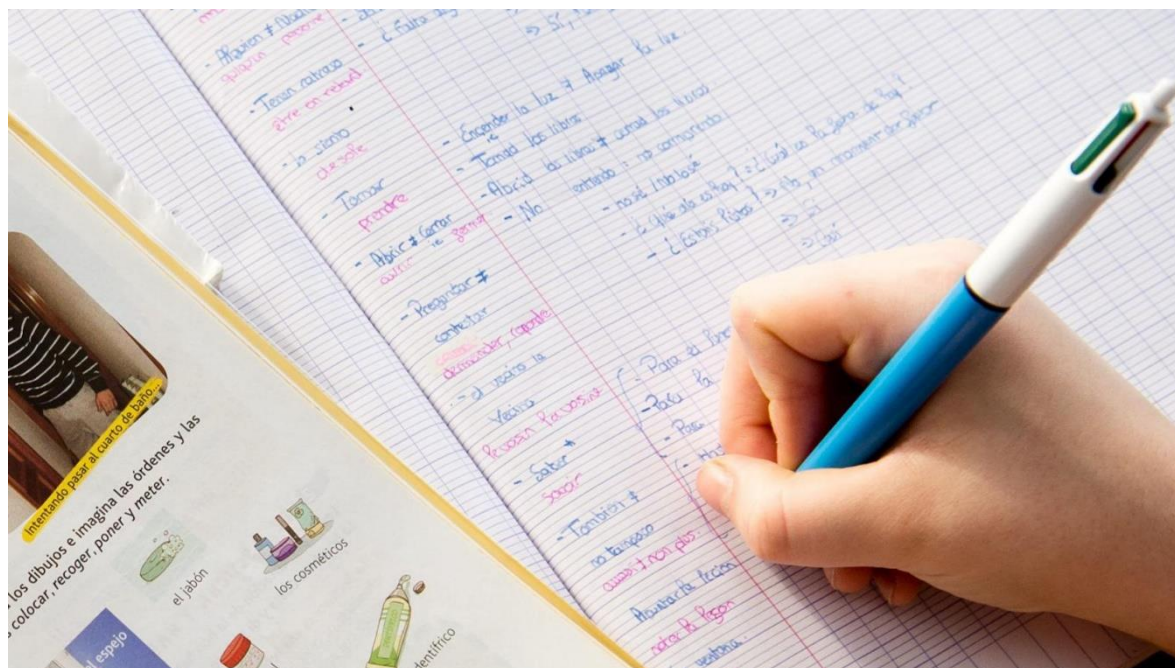 - Alguien ≠ Nadie
quelqu'un personne
- Tener retraso
être en retard
- Lo siento
désolé
- Tomar
prendre
- Abrir ≠ Cerrar
ouvrir ie fermer
- Preguntar ≠
contestar
demander, répondre
- el vecino la
vecina
le voisin la voisine
- Saber ≠
savoir
- También ≠
tampoco
aussi ≠ non plus
la lección
noter la leçon
ventana
- ¿ Falta
⇒ Sí,
- Encender la luz ≠ Apagar la luz
ie
- Tomad los libros
- Abrid los libros ≠ cerrad los libros
- No entiendo = no comprendo
- no sé / no lo sé
- ¿ Qué día es hoy ? = ¿ Cuál es la fecha de hoy ?
- ¿ Estáis listos ? ⇒ No, un momento por favor
⇒ Sí
⇒ Casi
- Para el
- Para la
- Para
Intentando pasar al cuarto de baño...
los dibujos e imagina las órdenes y las
colocar, recoger, poner y meter.
el jabón
los cosméticos
el espejo
dentífrico